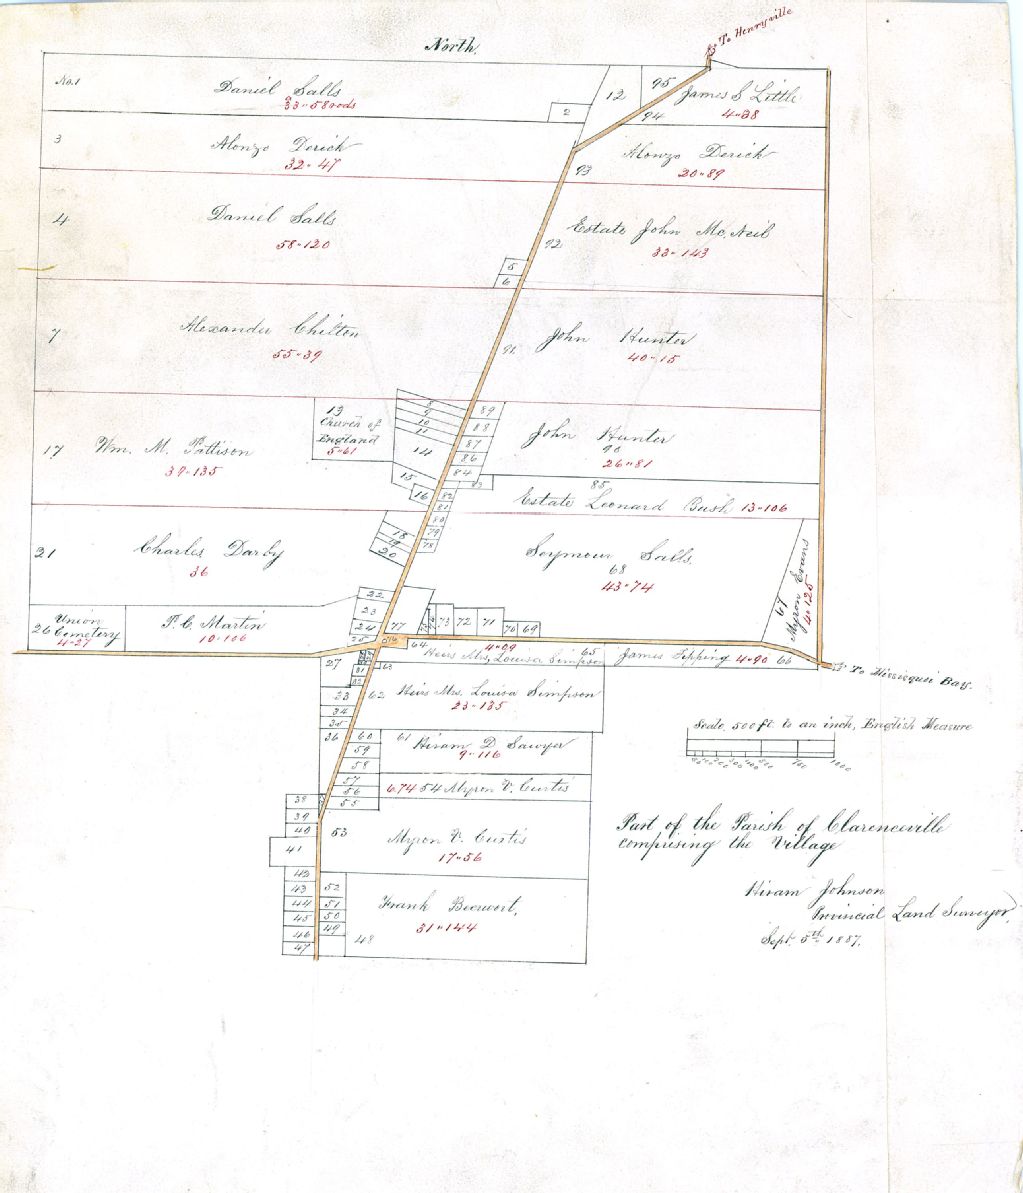 North.
To Henryville
No. 1
Daniel Salls
33"58 rods
2
12
95
James S Little
4"38
94
3
Alonzo Derick
32"47
93
Alonzo Derick
20"89
4
Daniel Salls
58"120
92
Estate John Mc. Neil
33"143
5
6
7
Alexander Chilton
55"39
91
John Hunter
40"15
8
9
10
11
14
15
16
13
Church of
England
5"61
17
Wm. M. Pattison
39"135
89
88
87
86
84
83
John Hunter
90
26"81
85
Estate Leonard Bush 13"106
82
81
80
79
78
18
19
20
21
Charles Darby
36
Seymour Salls.
68
43"74
67
Myron Evans
4"125
22
23
24
25
77
76
73
72
71
70
69
Union
26 Cemetery
4"27
T. C. Martin
10"106
64
4"09
Heirs Mrs. Louisa Simpson
65
James Tipping 4"90
66
To Missisquoi Bay.
27
31
32
63
33
34
35
62
Heirs Mrs. Louisa Simpson
23"135
Scale, 500 ft. to an inch, English Measure
36
60
59
58
57
56
55
61
Hiram D. Sawyer
9"116
6.74 54 Myron V. Curtis
38
39
40
41
42
43
44
45
46
47
53
Myron V. Curtis
17"56
52
51
50
49
48
Frank Beerwort,
31"144
Part of the Parish of Clarenceville
comprising the Village
Hiram Johnson
Provincial Land Surveyor,
Sept. 5th 1887.